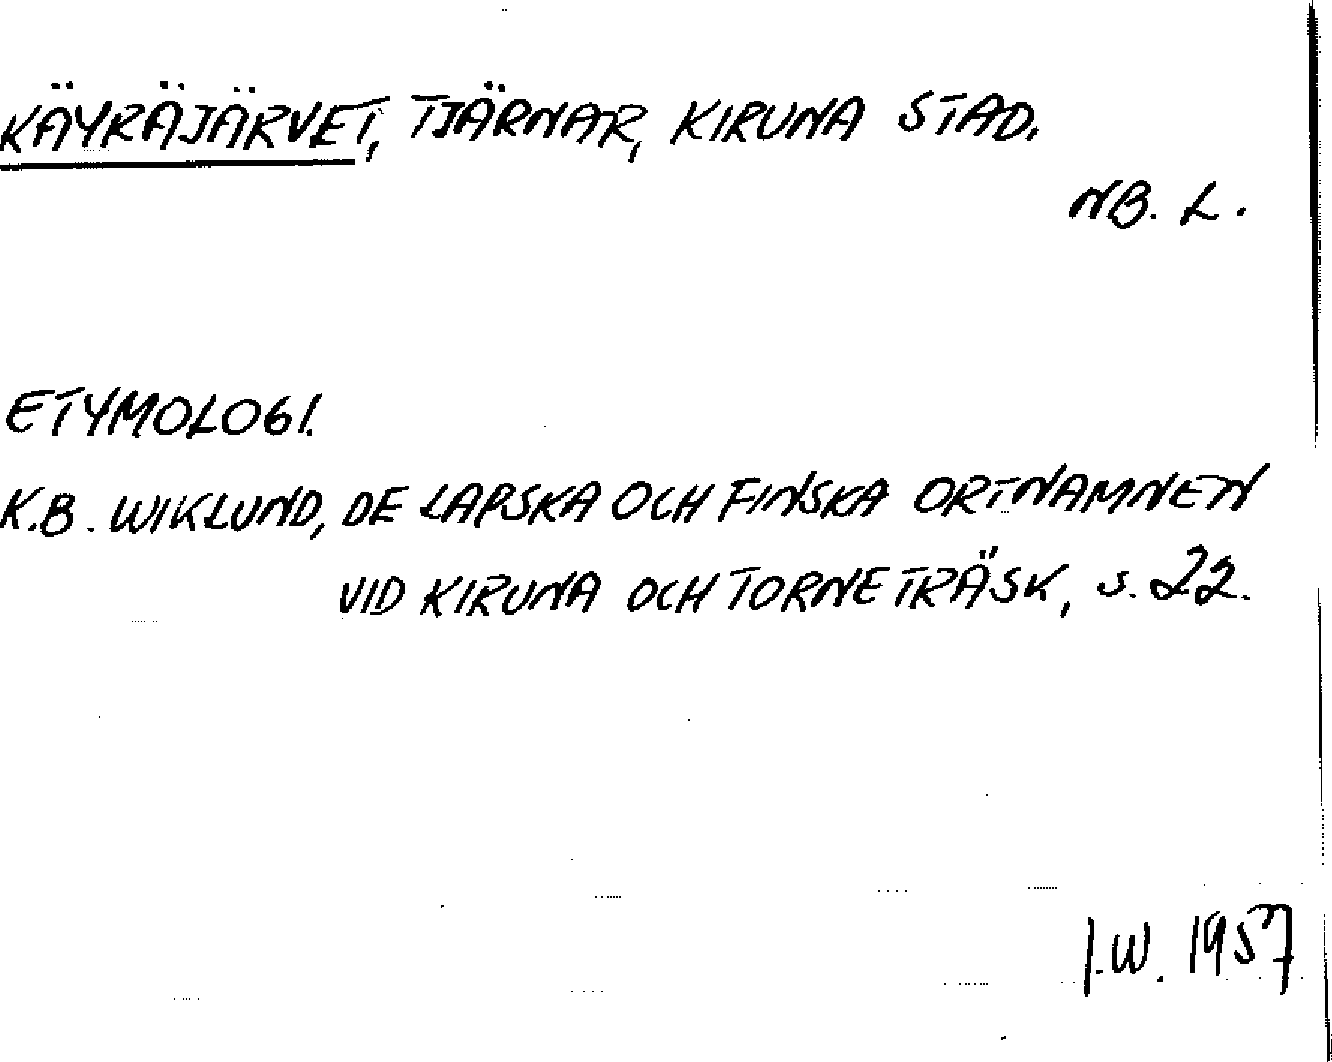 KÄYRÄJÄRVET, TJÄRNAR, KIRUNA STAD.
NB. L.
ETYMOLOGI.
K.B. WIKLUND, DE LAPSKA OCH FINSKA ORTNAMNEN
VID KIRUNA OCH TORNETRÄSK, s. 22.
I.W. 1957